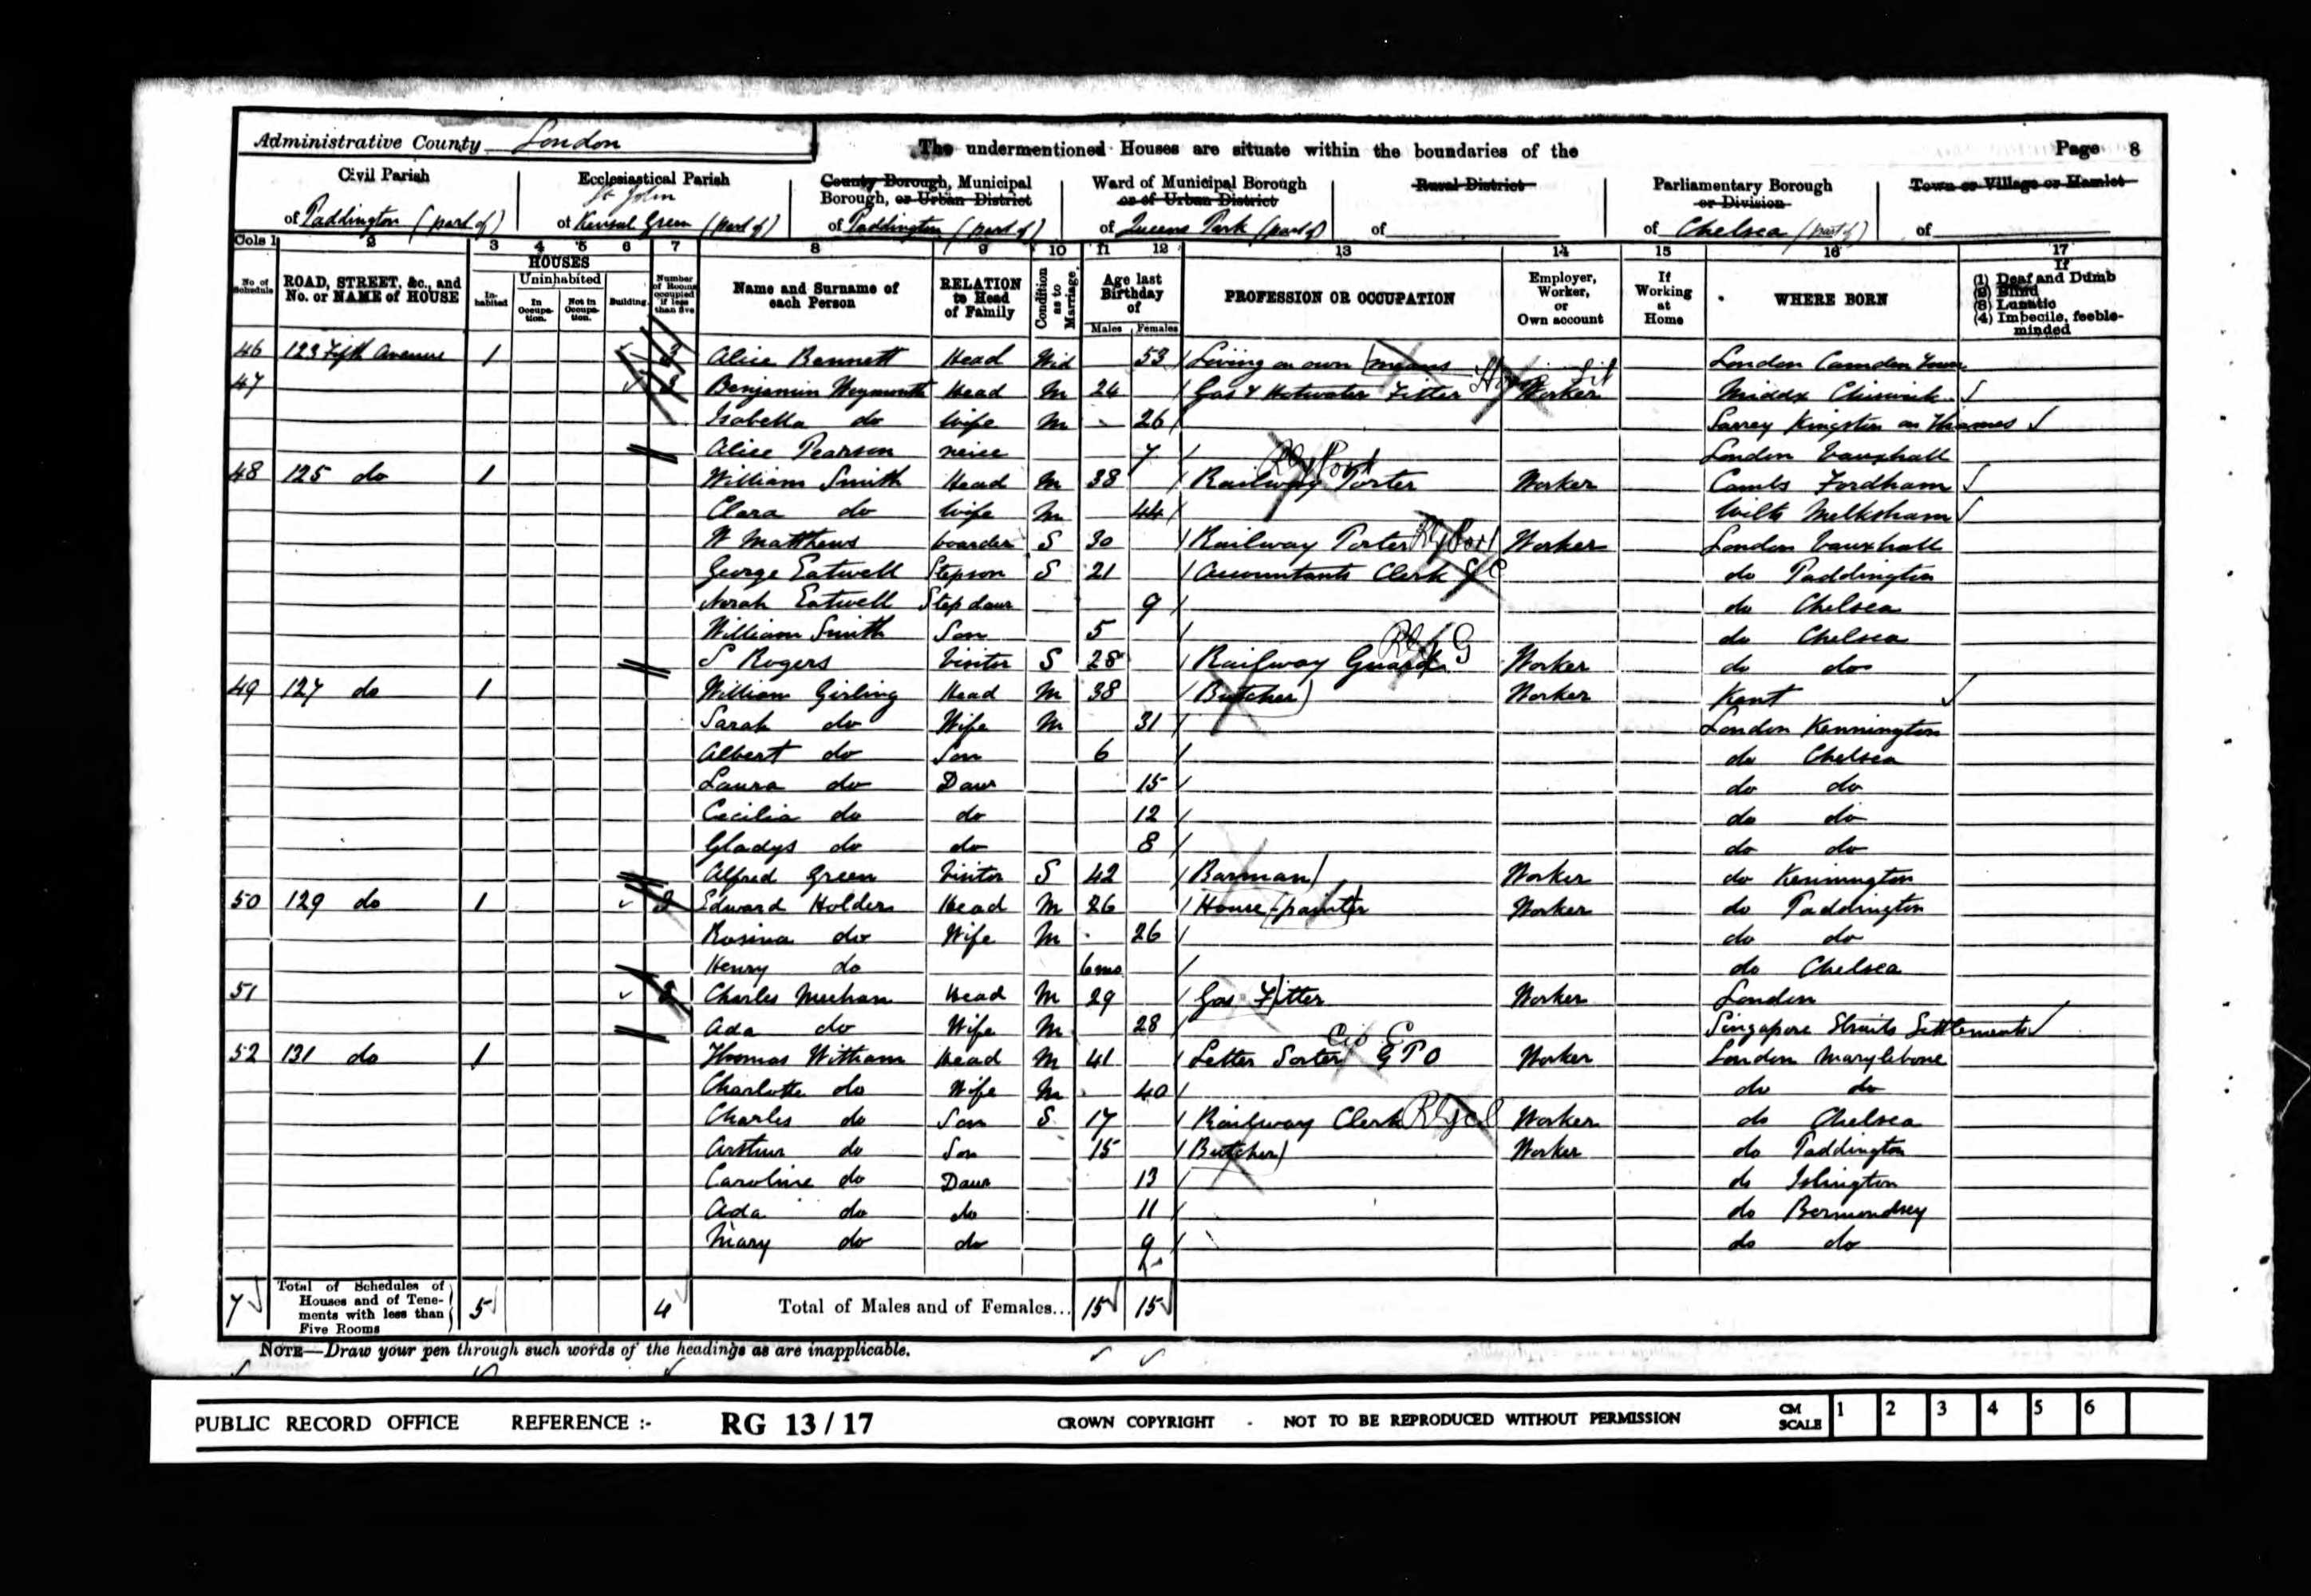 Administrative County London
The undermentioned Houses are situate within the boundaries of the
Page 8
Civil Parish of Paddington (part of)
Ecclesiastical Parish of St John Kensal Green (part of)
County Borough, Municipal Borough, or Urban District of Paddington (part of)
Ward of Municipal Borough or of Urban District of Queens Park (part of)
Rural District of
Parliamentary Borough or Division of Chelsea (part of)
Town or Village or Hamlet of
Cols 1 2 3 4 5 6 7 8 9 10 11 12 13 14 15 16 17
No. of Schedule
ROAD, STREET, &c., and No. or NAME of HOUSE
HOUSES
Inhabited
Uninhabited
In Occupation.
Not in Occupation.
Building
Number of Rooms occupied if less than five
Name and Surname of each Person
RELATION to Head of Family
Condition as to Marriage
Age last Birthday of
Males Females
PROFESSION OR OCCUPATION
Employer, Worker, or Own account
If Working at Home
WHERE BORN
If (1) Deaf and Dumb (2) Blind (3) Lunatic (4) Imbecile, feeble-minded
46 123 Fifth Avenue 1 3 Alice Bennett Head Wid 53 Living on own means London Camden Town
47 Benjamin Weymouth Head M 24 Gas & Hotwater Fitter Worker Middx Chiswick
Isabella do Wife M 26 Surrey Kingston on Thames
Alice Pearson neice 7 London Vauxhall
48 125 do 1 William Smith Head M 38 Railway Porter Rly Port Worker Cambs Fordham
Clara do Wife M 44 Wilts Melksham
W Matthews boarder S 30 Railway Porter Rly Port Worker London Vauxhall
George Eatwell Stepson S 21 Accountants Clerk do Paddington
Norah Eatwell Step daur 9 do Chelsea
William Smith Son 5 do Chelsea
S Rogers Visitor S 28 Railway Guard Rly G Worker do do
49 127 do 1 William Girling Head M 38 Butcher Worker Kent
Sarah do Wife M 31 London Kennington
Albert do Son 6 do Chelsea
Laura do Daur 15 do do
Cecilia do do 12 do do
Gladys do do 8 do do
Alfred Green Visitor S 42 Barman Worker do Kennington
50 129 do 1 Edward Holder Head M 26 House painter Worker do Paddington
Rosina do Wife M 26 do do
Henry do 6mo do Chelsea
51 Charles Meehan Head M 29 Gas Fitter Worker London
Ada do Wife M 28 Singapore Straits Settlements
52 131 do 1 Thomas Witham Head M 41 Letter Sorter G P O Worker London Marylebone
Charlotte do Wife M 40 do do
Charles do Son S 17 Railway Clerk Worker do Chelsea
Arthur do Son 15 Butcher Worker do Paddington
Caroline do Daur 13 do Islington
Ada do do 11 do Bermondsey
Mary do do 9 do do
7 Total of Schedules of Houses and of Tenements with less than Five Rooms 5 4 Total of Males and of Females... 15 15
NOTE—Draw your pen through such words of the headings as are inapplicable.
PUBLIC RECORD OFFICE REFERENCE :- RG 13/17 CROWN COPYRIGHT - NOT TO BE REPRODUCED WITHOUT PERMISSION CM SCALE 1 2 3 4 5 6